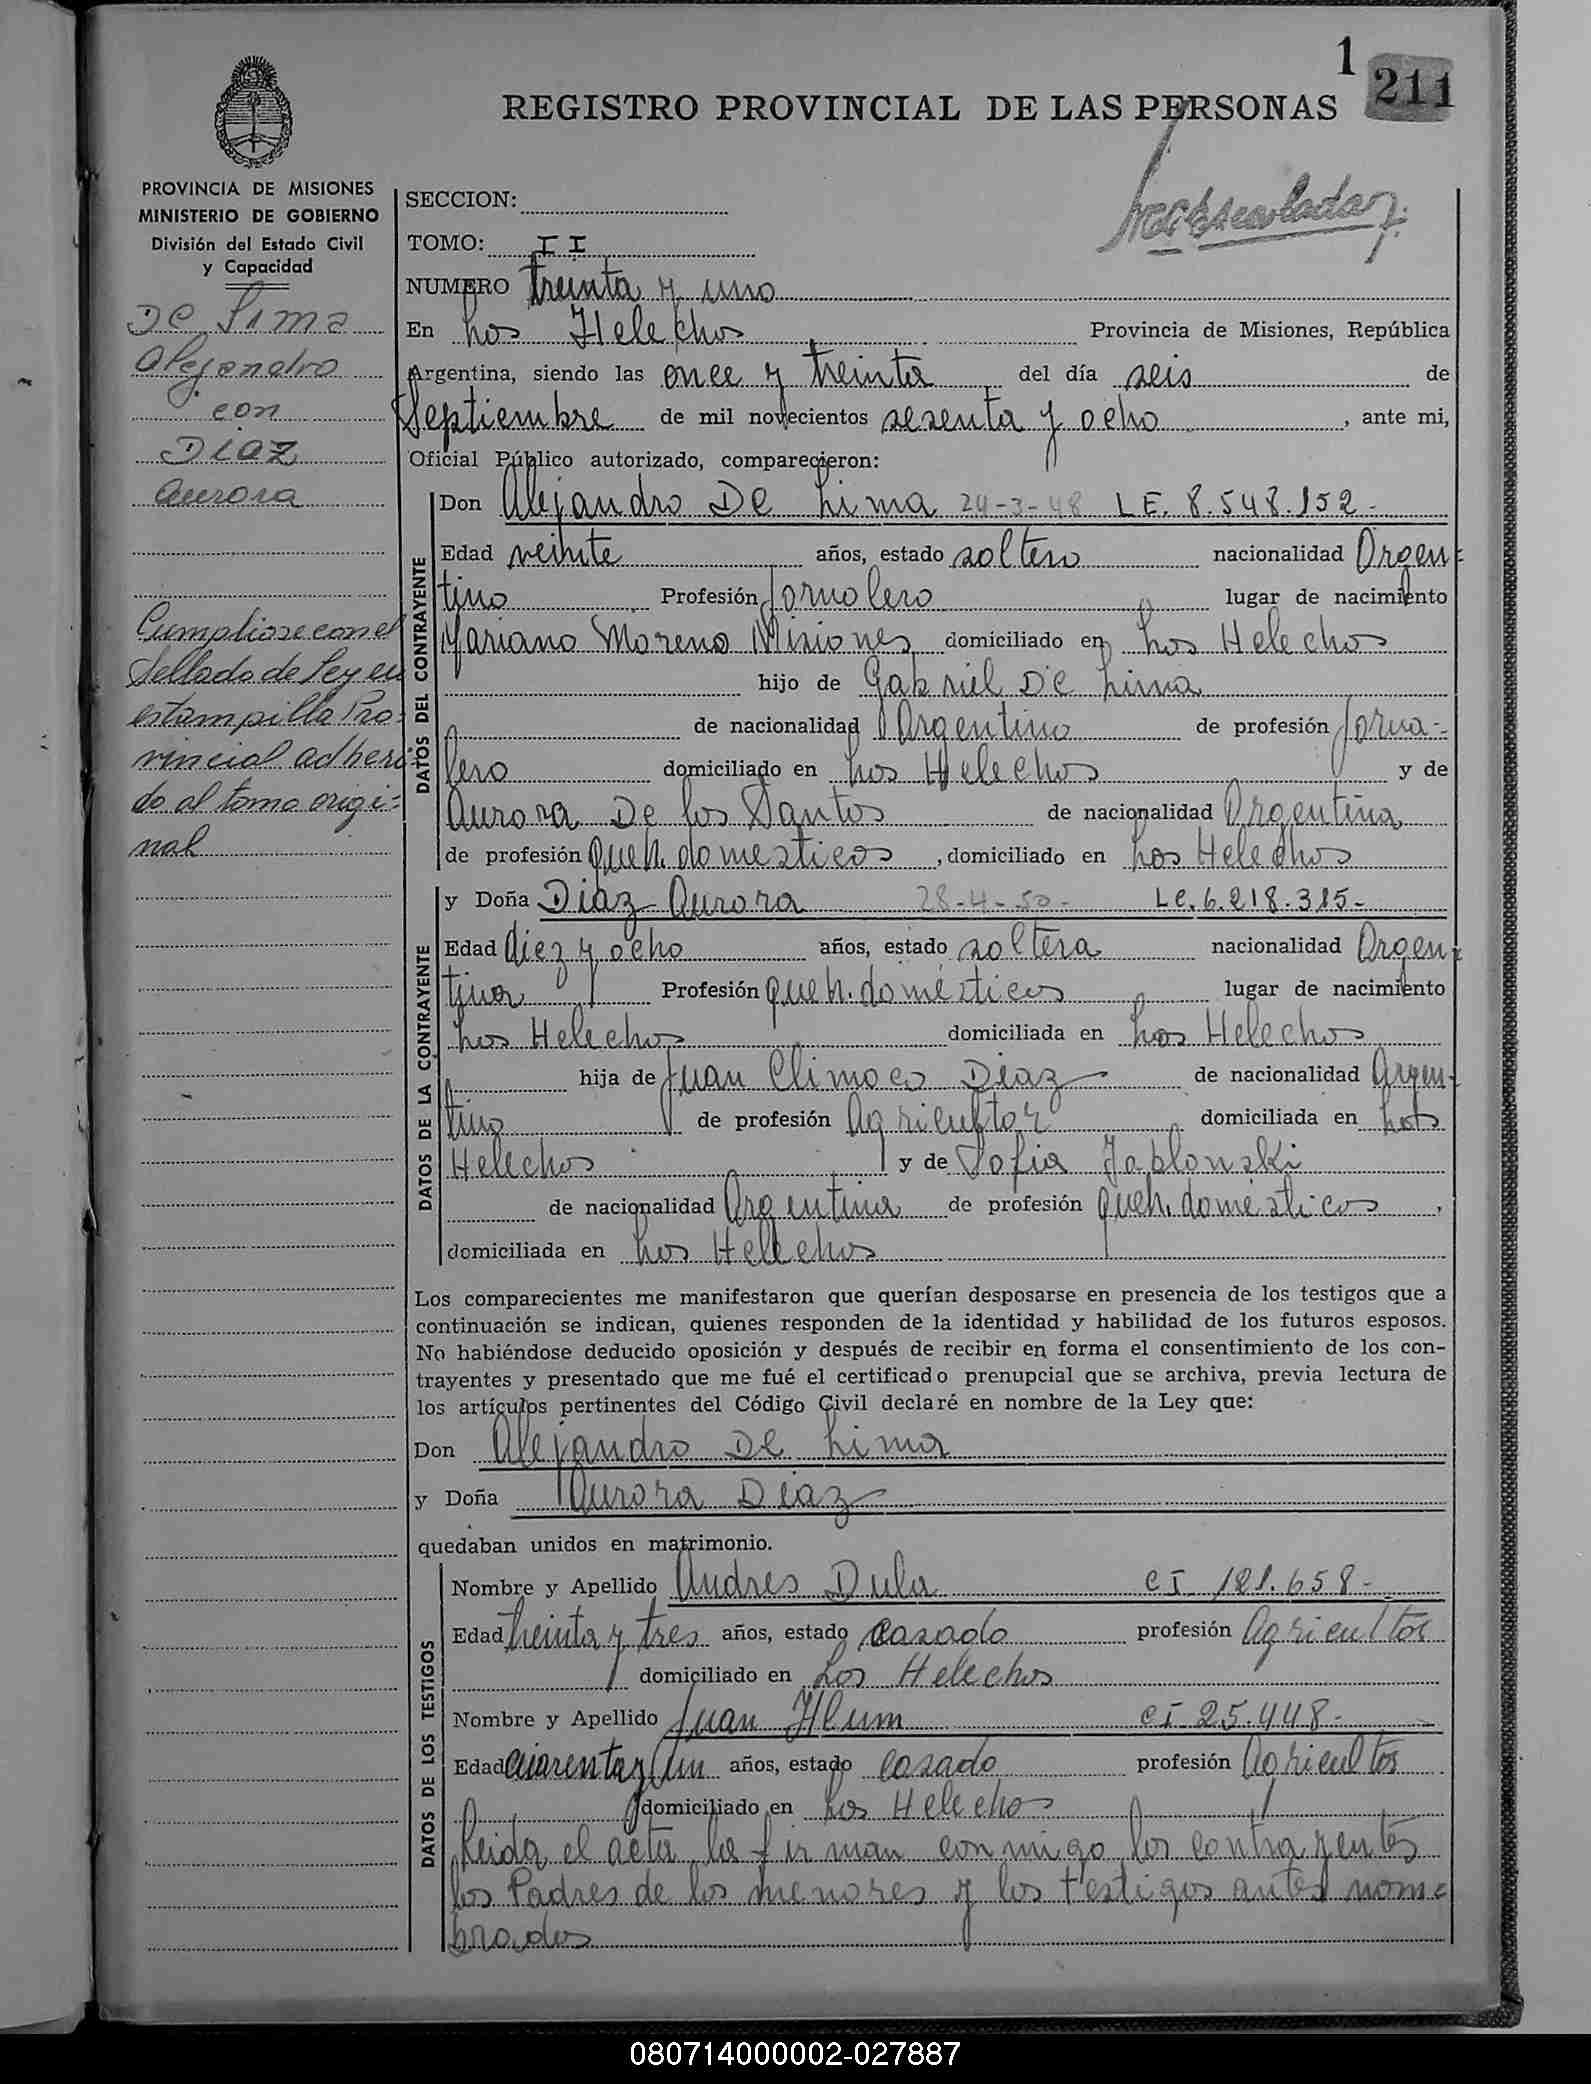 1
211
REGISTRO PROVINCIAL DE LAS PERSONAS
PROVINCIA DE MISIONES
MINISTERIO DE GOBIERNO
División del Estado Civil
y Capacidad
De Lima
Alejandro
con
DIAZ
Aurora
Cumpliose con el
Sellado de Ley en
estampilla Pro-
vincial adheri-
do al tomo origi-
nal
SECCION:
TOMO: II
NUMERO treinta y uno
En Los Helechos Provincia de Misiones, República
Argentina, siendo las once y treinta del día seis de
Septiembre de mil novecientos sesenta y ocho, ante mi,
Oficial Público autorizado, comparecieron:
DATOS DEL CONTRAYENTE
Don Alejandro De Lima 24-3-48 LE. 8.548.152.-
Edad veinte años, estado soltero nacionalidad Argen-
tino Profesión Jornalero lugar de nacimiento
Mariano Moreno Misiones domiciliado en Los Helechos
hijo de Gabriel De Lima
de nacionalidad Argentino de profesión Jorna-
lero domiciliado en Los Helechos y de
Aurora De los Santos de nacionalidad Argentina
de profesión Queh. domesticos, domiciliado en Los Helechos
DATOS DE LA CONTRAYENTE
y Doña Diaz Aurora 28-4-50- LC. 6.218.315-
Edad diez y ocho años, estado soltera nacionalidad Argen-
tina Profesión queh. domésticos lugar de nacimiento
Los Helechos domiciliada en Los Helechos
hija de Juan Climaco Diaz de nacionalidad Argen-
tino de profesión Agricultor domiciliada en Los
Helechos y de Sofia Jablonski
de nacionalidad Argentina de profesión queh. domésticos,
domiciliada en Los Helechos
Los comparecientes me manifestaron que querían desposarse en presencia de los testigos que a
continuación se indican, quienes responden de la identidad y habilidad de los futuros esposos.
No habiéndose deducido oposición y después de recibir en forma el consentimiento de los con-
trayentes y presentado que me fué el certificado prenupcial que se archiva, previa lectura de
los artículos pertinentes del Código Civil declaré en nombre de la Ley que:
Don Alejandro De Lima
y Doña Aurora Diaz
quedaban unidos en matrimonio.
DATOS DE LOS TESTIGOS
Nombre y Apellido Andres Dula CI 121.658-
Edad treinta y tres años, estado casado profesión Agricultor
domiciliado en Los Helechos
Nombre y Apellido Juan CI 25.448-
Edad cuarenta y un años, estado casado profesión Agricultor
domiciliado en Los Helechos
Leida el acta la firman conmigo los contrayentes
los Padres de los menores y los testigos antes nom-
brados
080714000002-027887